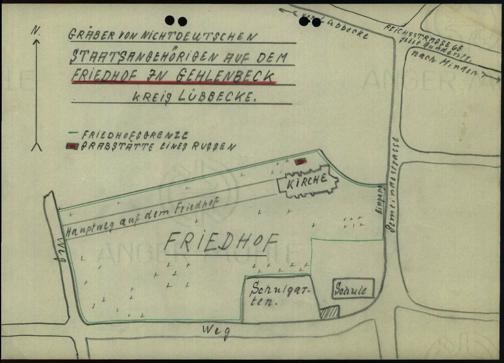 N.
GRÄBER VON NICHTDEUTSCHEN
STAATSANGEHÖRIGEN AUF DEM
FRIEDHOF ZN GEHLENBECK
KREIS LÜBBECKE.
FRIEDHOFSGRENZE
GRABSTÄTTE EINES RUSSEN
LÜBBECKE
REICHSSTRASSE 65
nach Minden
KIRCHE
Hauptweg auf dem Friedhof
Weg
FRIEDHOF
Eingang
Gemeindestrasse
Schulgar-
ten.
Schule
Weg